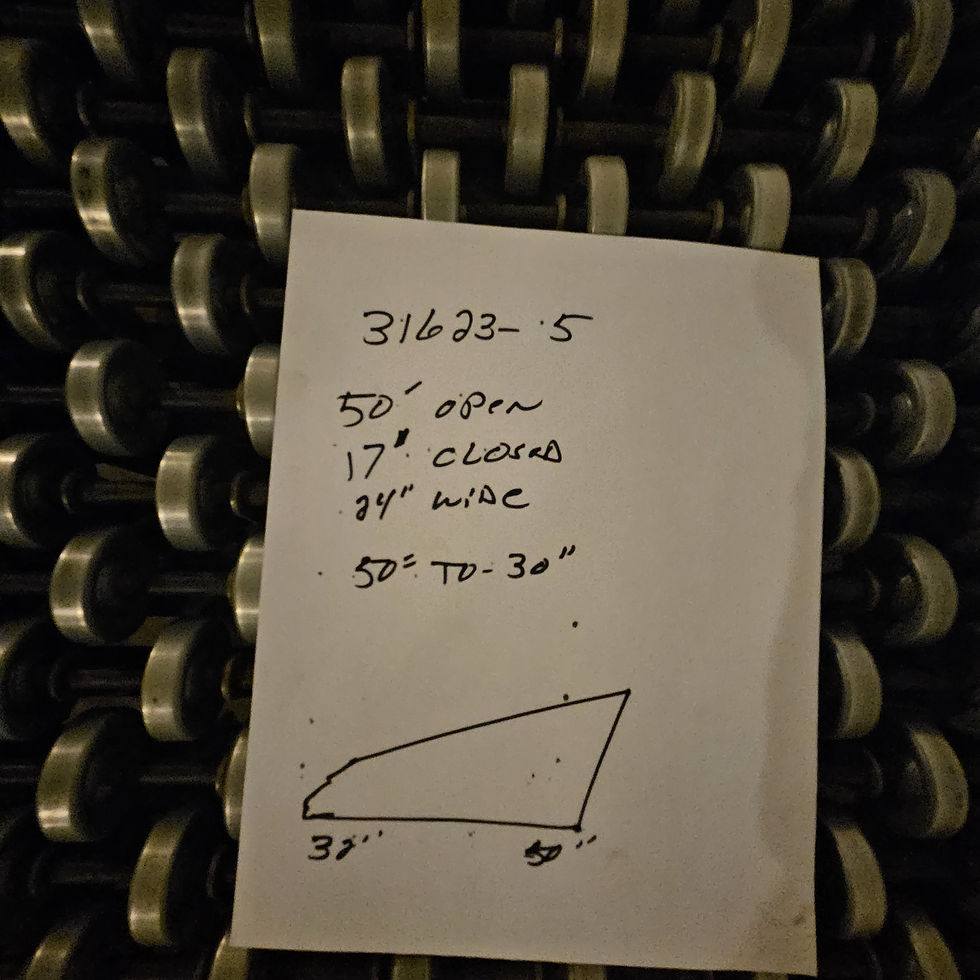 31623- 5
50' OPEN
17" CLOSED
24" WIDE
50" TO- 30"
32"
50"